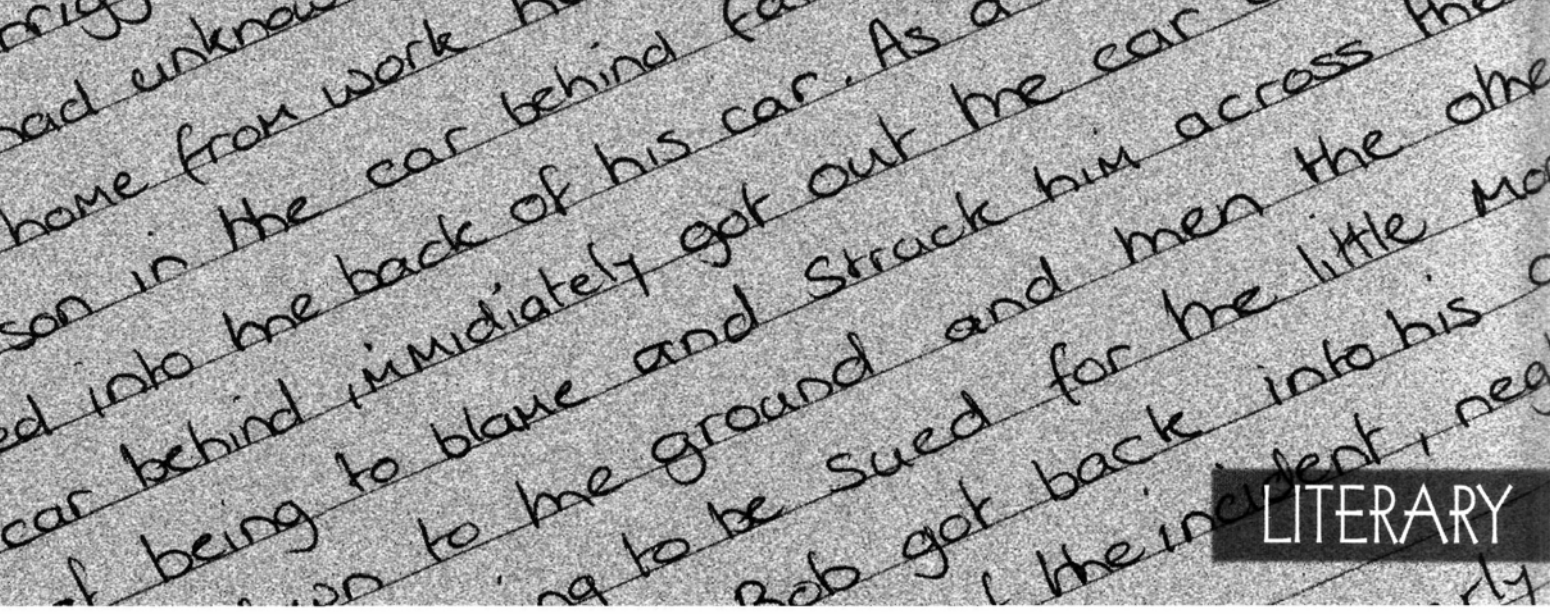 unknow
home from work
son in the car behind
into the back of his car. As a
car behind immidiately got out the car
of being to blame and struck him across
to the ground and then the
to be sued for the little
Bob got back into his
the incident,
LITERARY